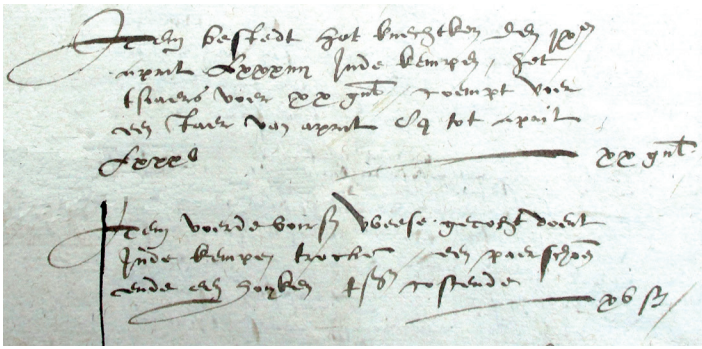 Item bestedt het knechtken den ixen
april Lxxxiiii Inde kempen, het
tsiaers voer xx gul coempt voer
een Iaer van april 84 tot april
Lxxxv xx gul
Item voerde voirs weese gecocht doent
Inde kempen trocke een paer schoen
ende een costende xv s